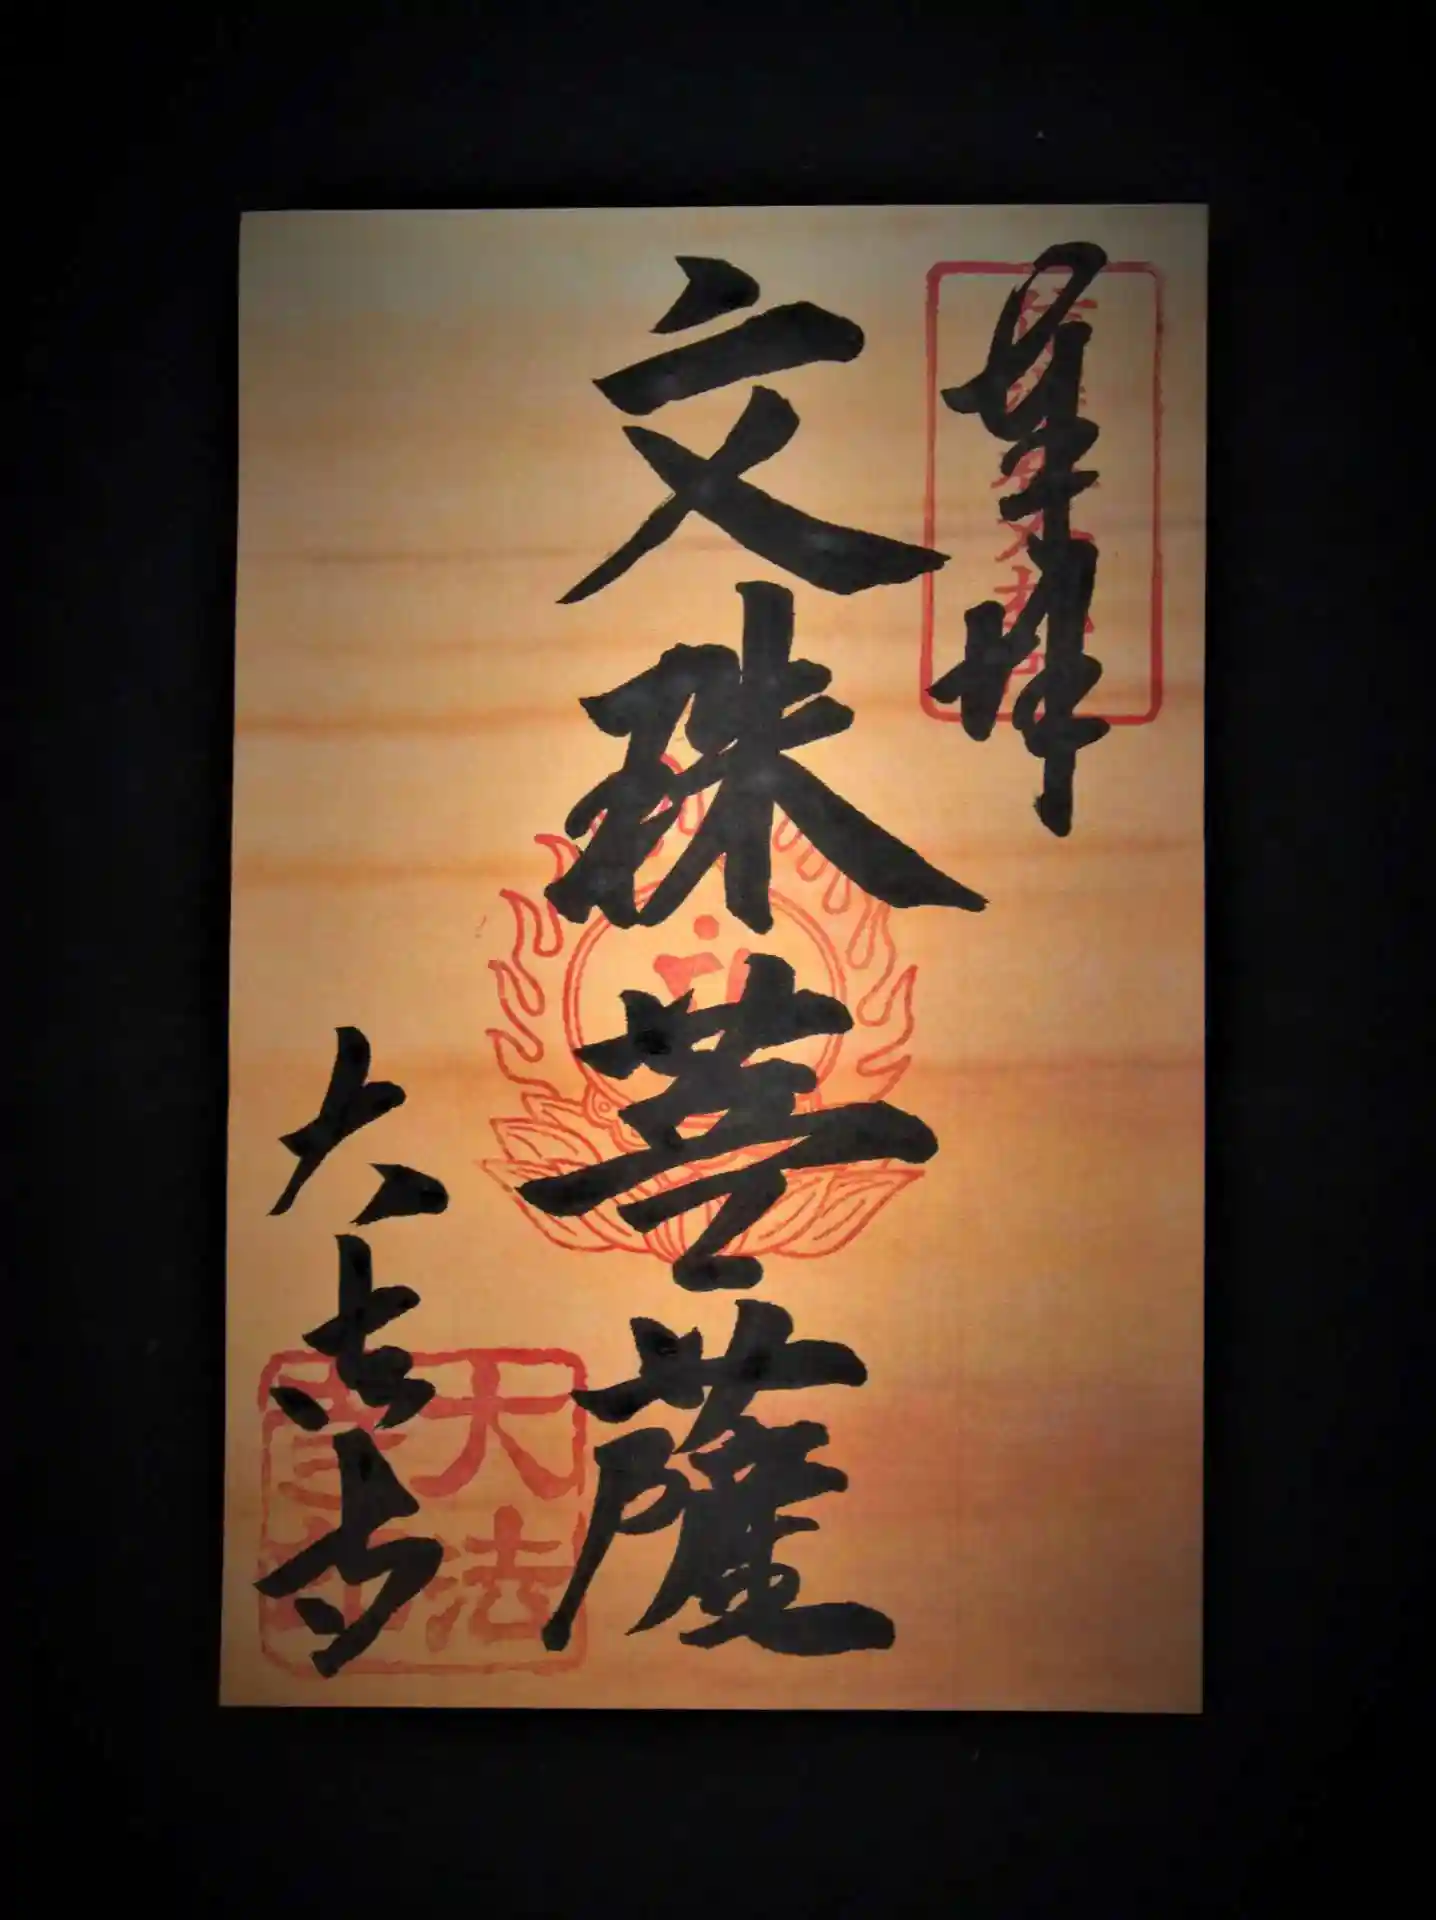 奉拝
文殊菩薩
大法寺
大法寺印